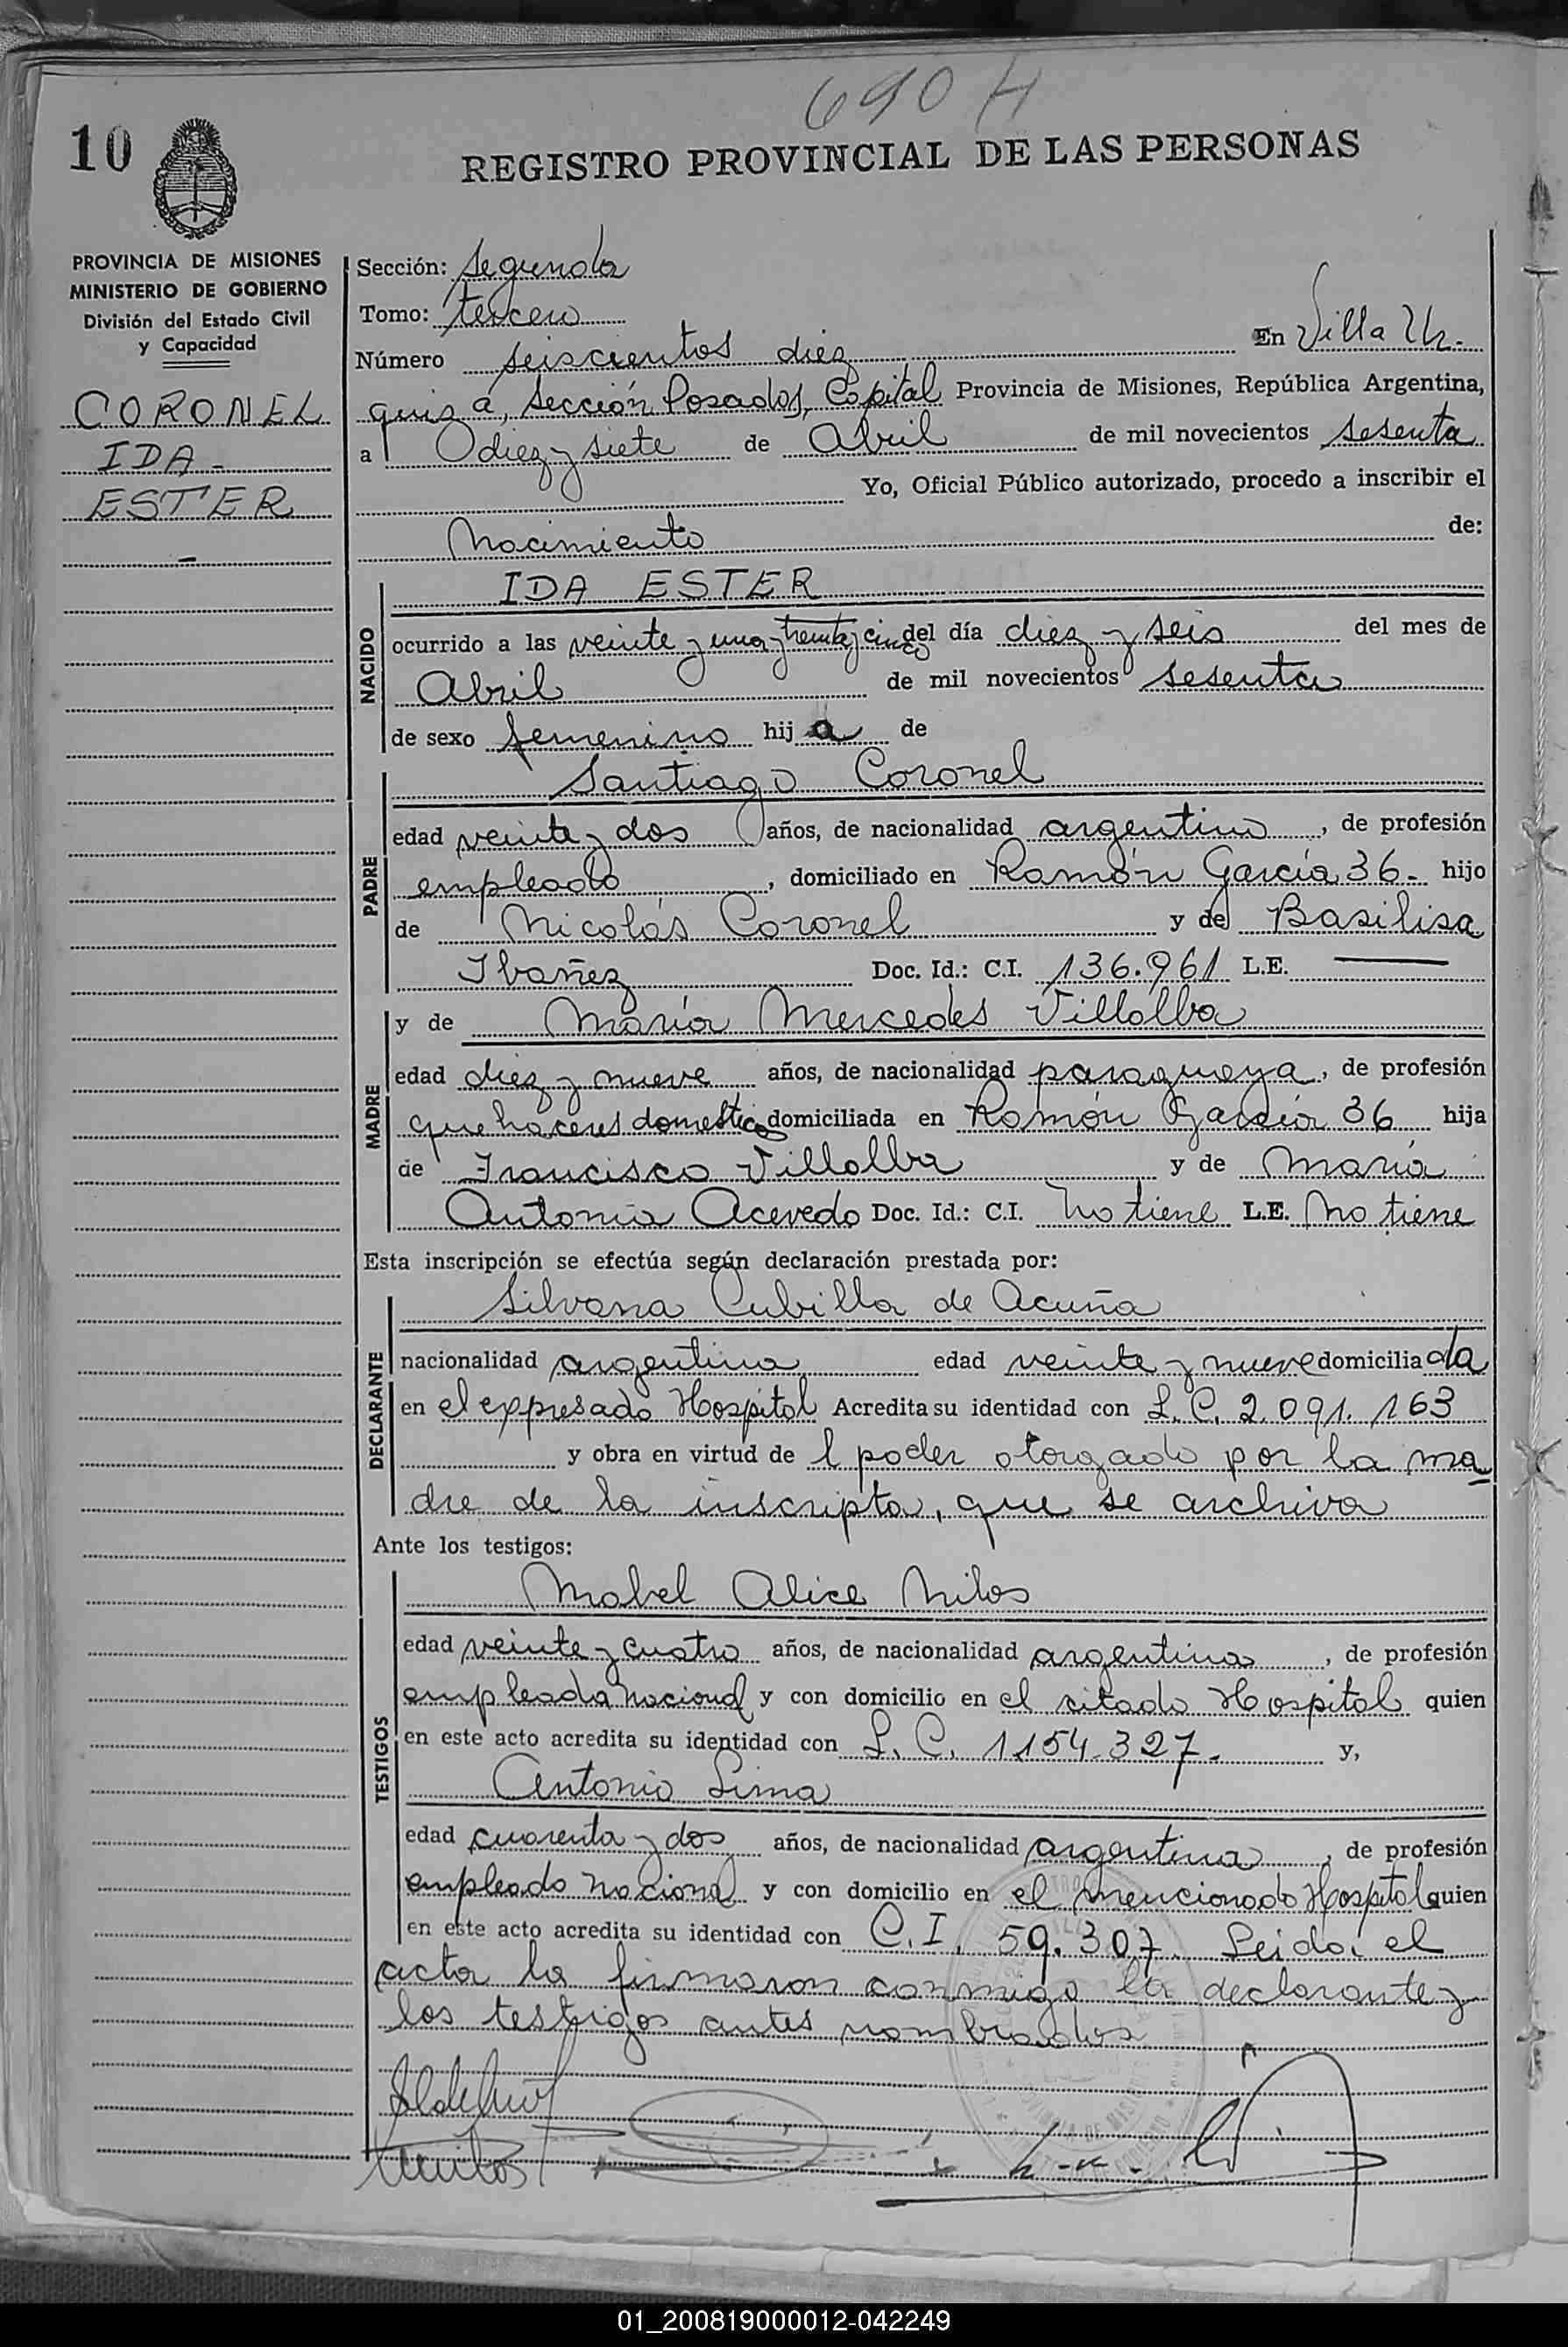 690 H
10
REGISTRO PROVINCIAL DE LAS PERSONAS
PROVINCIA DE MISIONES
MINISTERIO DE GOBIERNO
División del Estado Civil
y Capacidad
CORONEL
IDA -
ESTER
-
Sección: segunda
Tomo: tercero
Número seiscientos diez En Villa Ur-
quiza, Sección Posadas, Capital Provincia de Misiones, República Argentina,
a diez y siete de Abril de mil novecientos sesenta
Yo, Oficial Público autorizado, procedo a inscribir el
Nacimiento de:
NACIDO
IDA ESTER
ocurrido a las veinte y una y treinta y cinco del día diez y seis del mes de
Abril de mil novecientos sesenta
de sexo femenino hija de
PADRE
Santiago Coronel
edad veinte y dos años, de nacionalidad argentino, de profesión
empleado, domiciliado en Ramón García 36- hijo
de Nicolás Coronel y de Basilisa
Ibañez Doc. Id.: C.I. 136.961 L.E. —
MADRE
y de María Mercedes Villalba
edad diez y nueve años, de nacionalidad paraguaya, de profesión
quehaceres domesticos domiciliada en Ramón García 36 hija
de Francisco Villalba y de María
Antonia Acevedo Doc. Id.: C.I. No tiene L.E. No tiene
Esta inscripción se efectúa según declaración prestada por:
DECLARANTE
Silvana Cubilla de Acuña
nacionalidad argentina edad veinte y nueve domiciliada
en el expresado Hospital Acredita su identidad con L.C. 2.091.163
y obra en virtud del poder otorgado por la ma-
dre de la inscripta, que se archiva
Ante los testigos:
TESTIGOS
Mabel Alice Milos
edad veinte y cuatro años, de nacionalidad argentina, de profesión
empleada nacional y con domicilio en el citado Hospital quien
en este acto acredita su identidad con L.C. 1154.327. y,
Antonio Lima
edad cuarenta y dos años, de nacionalidad argentina, de profesión
empleado nacional y con domicilio en el mencionado Hospital quien
en este acto acredita su identidad con C.I. 59.307. Leida el
acta la firmaron conmigo la declarante y
los testigos antes nombrados
01_200819000012-042249